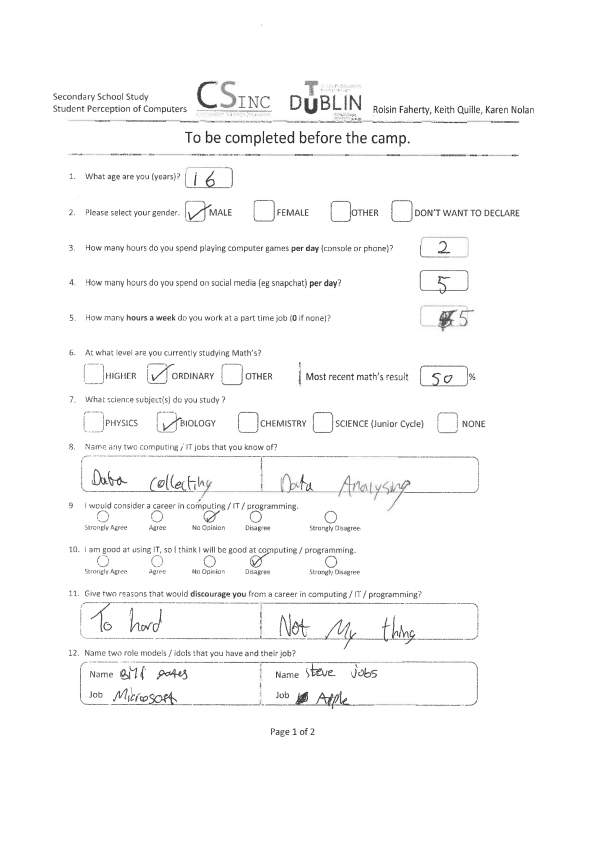 Secondary School Study
Student Perception of Computers
CSINC
DUBLIN
Roisin Faherty, Keith Quille, Karen Nolan
To be completed before the camp.
1. What age are you (years)? 16
2. Please select your gender. MALE FEMALE OTHER DON'T WANT TO DECLARE
3. How many hours do you spend playing computer games per day (console or phone)? 2
4. How many hours do you spend on social media (eg snapchat) per day? 5
5. How many hours a week do you work at a part time job (0 if none)? 5
6. At what level are you currently studying Math's?
HIGHER ORDINARY OTHER Most recent math's result 50 %
7. What science subject(s) do you study ?
PHYSICS BIOLOGY CHEMISTRY SCIENCE (Junior Cycle) NONE
8. Name any two computing / IT jobs that you know of?
Data collecting Data Analysing
9 I would consider a career in computing / IT / programming.
Strongly Agree Agree No Opinion Disagree Strongly Disagree
10. I am good at using IT, so I think I will be good at computing / programming.
Strongly Agree Agree No Opinion Disagree Strongly Disagree
11. Give two reasons that would discourage you from a career in computing / IT / programming?
To hard Not My thing
12. Name two role models / idols that you have and their job?
Name Bill gates Name Steve jobs
Job Microsoft Job Apple
Page 1 of 2